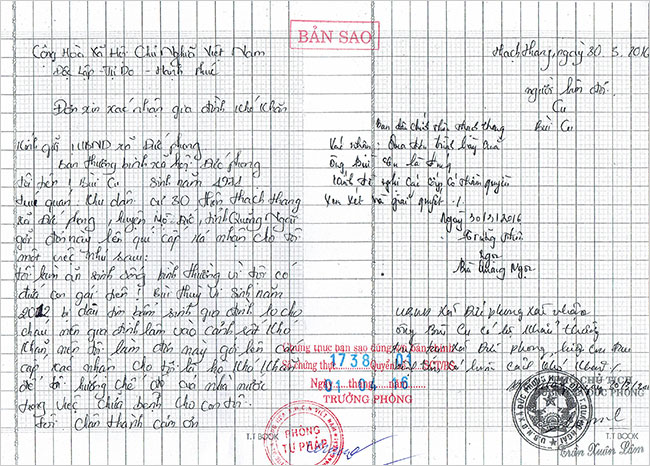 BẢN SAO
Cộng Hoà Xã Hội Chủ Nghĩa Việt Nam
Độ Lập - Tự Do - Hạnh Phúc
Đơn xin xác nhận gia đình khó khăn
Kính gửi UBND xã Đức phong
Ban thương binh xã hội Đức phong
Tôi tên: Bùi Cu sinh năm 1971
quan: Khu dân cư 30 thôn thạch thang
xã Đức phong, huyện Mộ Đức, tỉnh Quảng Ngãi
gởi đơn này lên quí cấp xá nhận cho tôi
một việc như sau:
tôi làm ăn sinh sống bình thường vì tôi có
đứa con gái tên: Bùi Thuỳ Vi sinh năm
2012 bị đau tim bẩm sinh gia đình lo cho
cháu nên gia đình lâm vào cảnh rất khó
khăn, nên tôi làm đơn này gởi lên các
cấp xác nhận cho tôi là hộ khó khăn
để tôi hưởng chế độ của nhà nước
trong việc chữa bệnh cho con tôi.
Tôi chân thành cảm ơn
Thạch thang, ngày 30 3. 2016
người làm đơn
Cu
Bùi Cu
Ban dân chính thôn thạch thang
Xác nhận: Qua đơn trình bày của
Ông Bùi Cu là đúng
Kính đề nghị các cấp có thẩm quyền
xem xét và giải quyết ./.
Ngày 30/3/2016
Trưởng thôn
Ngọc
Bùi Quảng Ngọc
UBND xã Đức phong xác nhận
ông Bùi Cu có hộ khẩu thường
xã Đức phong, hiện
Chứng thực bản sao đúng với bản chính
Số chứng thực 1738 Quyển 01 SCT/BS
Ngày 01 tháng 04 năm 16
TRƯỞNG PHÒNG
PHÒNG TƯ PHÁP
CHỦ TỊCH
U.B.N.D X. ĐỨC PHONG H. MỘ ĐỨC T. QUẢNG NGÃI
T.T BOOK
T.T BOOK
Trần Xuân Lâm